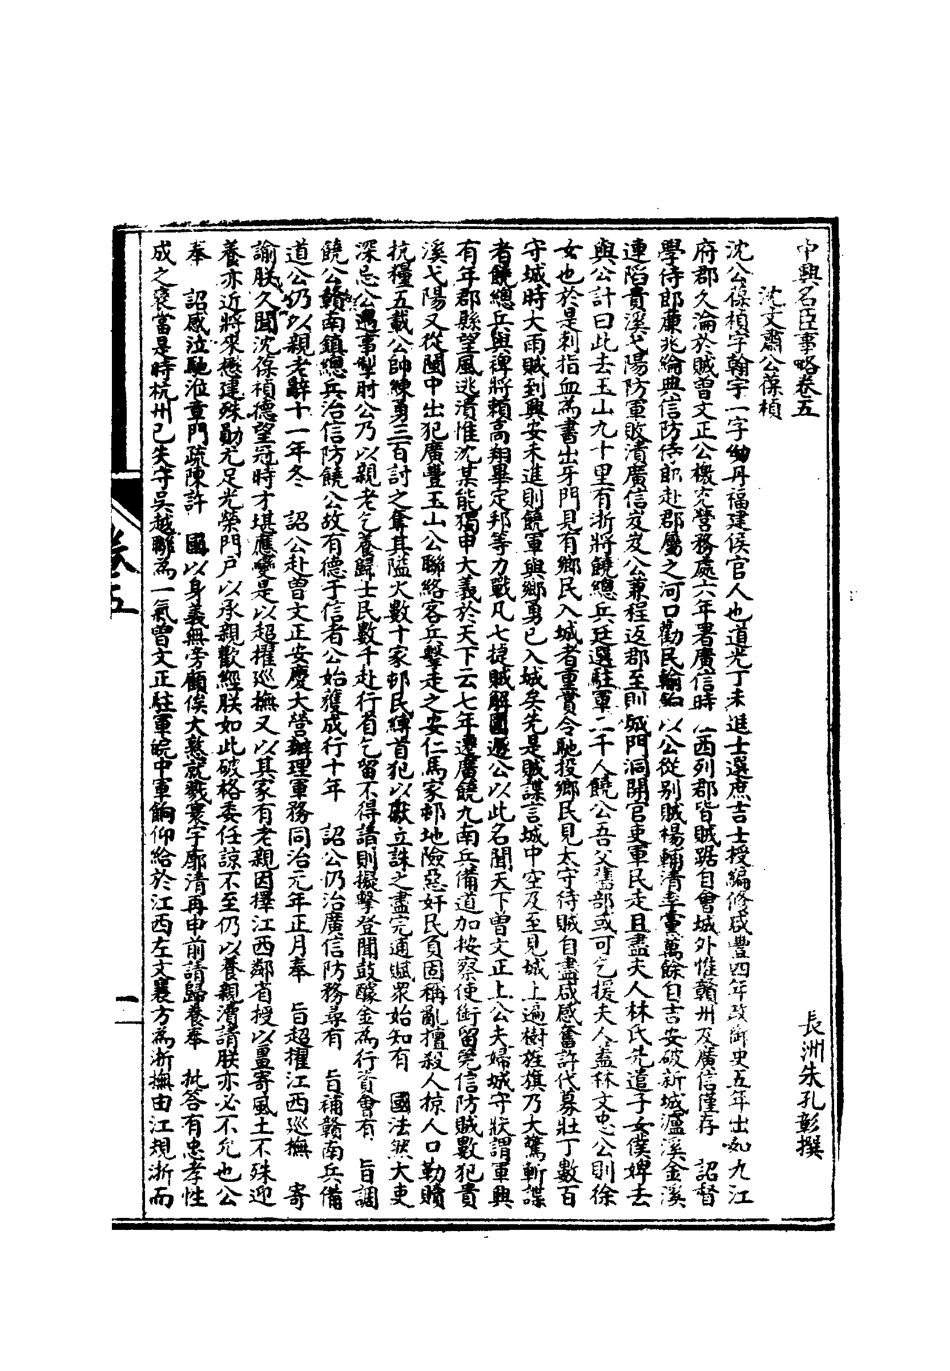 中興名臣事略卷五
長洲朱孔彰撰
沈文肅公葆楨
沈公葆楨字翰宇一字幼丹福建侯官人也道光丁未進士選庶吉士授編修咸豐四年改御史五年出知九江
府郡久淪於賊曾文正公檄充營務處六年署廣信時江西列郡皆賊踞自會城外惟贛州及廣信僅存 詔督
學侍郎廉兆綸典信防侍郎赴郡屬之河口勸民輸餉以公從別賊楊輔清率黨萬餘自吉安破新城瀘溪金溪
連陷貴溪弋陽防軍敗潰廣信岌岌公兼程返郡至則城門洞開官吏軍民走且盡夫人林氏先遣子女僕婢去
與公計曰此去玉山九十里有浙將饒總兵廷選駐軍二千人饒公吾父舊部或可乞援夫人蓋林文忠公則徐
女也於是刺指血為書出牙門見有鄉民入城者重賚令馳投鄉民見太守待賊自盡咸感奮許代募壯丁數百
守城時大雨賊到興安未進則饒軍與鄉勇已入城矣先是賊諜言城中空及至見城上遍樹旌旗乃大驚斬諜
者饒總兵與裨將賴高翔畢定邦等力戰凡七捷賊解圍遁公以此名聞天下曾文正上公夫婦城守狀謂軍興
有年郡縣望風逃潰惟沈某能獨申大義於天下云七年遷廣饒九南兵備道加按察使銜留筦信防賊數犯貴
溪弋陽又從閩中出犯廣豐玉山公聯絡客兵擊走之安仁馬家邨地險惡奸民負固稱亂擅殺人掠人口勒贖
抗糧五載公帥練勇三百討之奪其隘火數十家邨民縛首犯以獻立誅之盡完逋賦眾始知有 國法然大吏
深忌公遇事掣肘公乃以親老乞養歸士民數千赴行省乞留不得請則擬擊登聞鼓醵金為行資會有 旨調
饒公贛南鎮總兵治信防饒公故有德于信者公始獲成行十年 詔公仍治廣信防務尋有 旨補贛南兵備
道公仍以親老辭十一年冬 詔公赴曾文正安慶大營辦理軍務同治元年正月奉 旨超擢江西巡撫 寄
諭朕久聞沈葆楨德望冠時才堪應變是以超擢巡撫又以其家有老親因擇江西鄰省授以畺寄風土不殊迎
養亦近將來懋建殊勛光足光榮門戶以承親歡經朕如此破格委任諒不至仍以養親瀆請朕亦必不允也公
奉 詔感泣馳淮章門疏陳許 國以身義無旁顧俟大憝就戮寰宇廓清再申前請歸養奉 批答有忠孝性
成之褒當是時杭州已失守吳越聯為一氣曾文正駐軍皖中軍餉仰給於江西左文襄方為浙撫由江規浙而
卷五
一